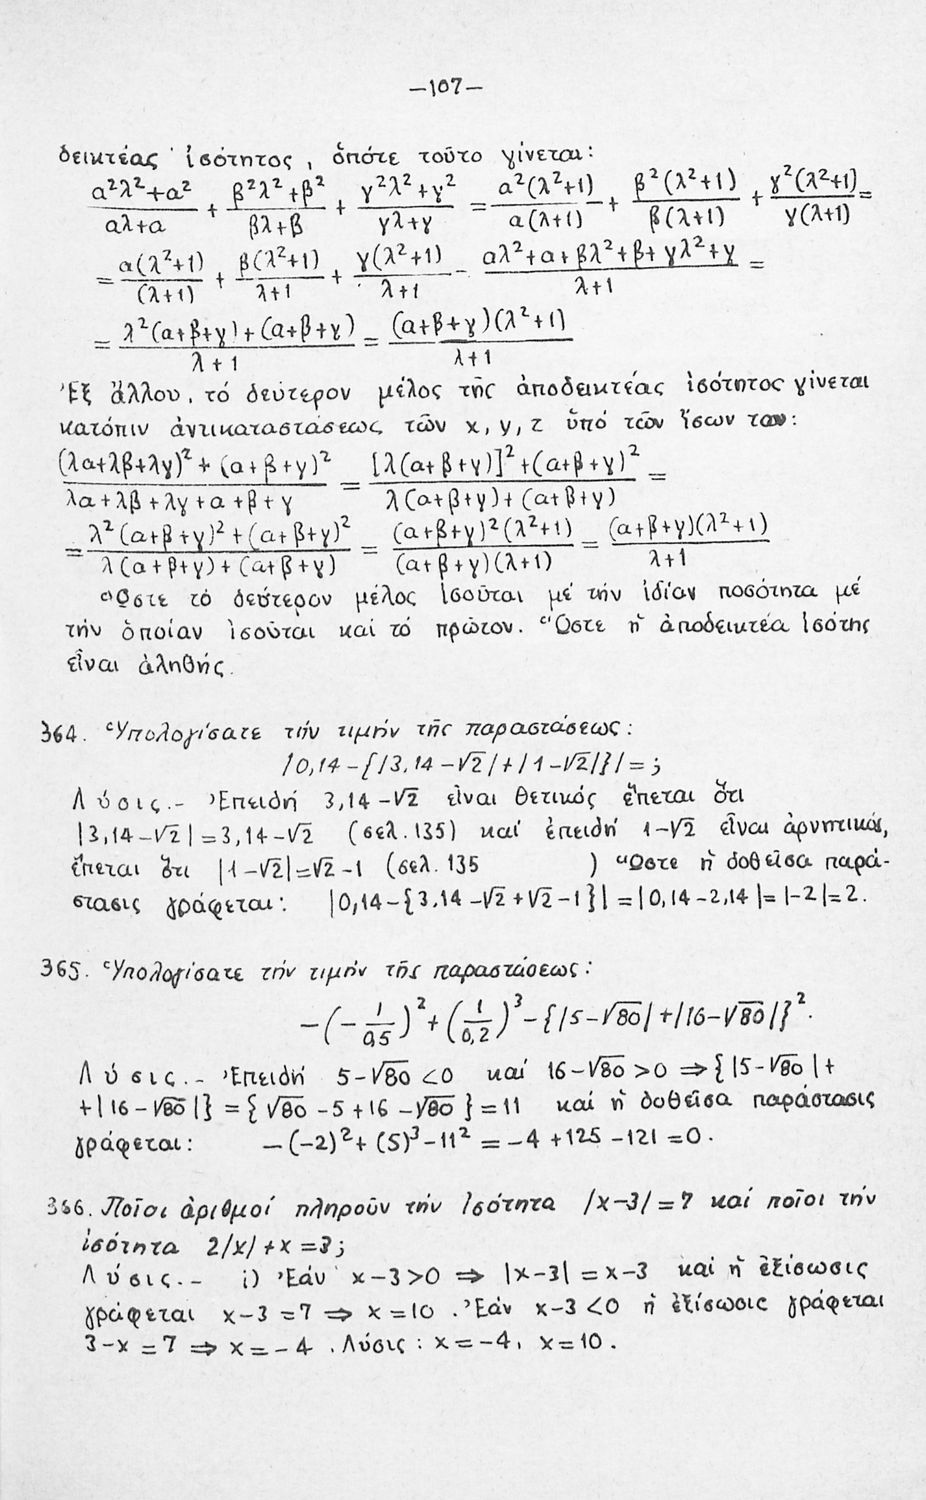 —107—
δεικτέας ἰσότητος, ὁπότε τοῦτο γίνεται:
(α²λ²+α²)/(αλ+α) + (β²λ²+β²)/(βλ+β) + (γ²λ²+γ²)/(γλ+γ) = α²(λ²+1)/α(λ+1) + β²(λ²+1)/β(λ+1) + γ²(λ²+1)/γ(λ+1) =
= α(λ²+1)/(λ+1) + β(λ²+1)/λ+1 + γ(λ²+1)/λ+1 - (αλ²+α+βλ²+β+γλ²+γ)/λ+1 =
= (λ²(α+β+γ)+(α+β+γ))/λ+1 = (α+β+γ)(λ²+1)/λ+1
Ἐξ ἄλλου, τό δεύτερον μέλος τῆς ἀποδεικτέας ἰσότητος γίνεται
κατόπιν ἀντικαταστάσεως τῶν x, y, z ὑπό τῶν ἴσων των:
((λα+λβ+λγ)²+(α+β+γ)²)/(λα+λβ+λγ+α+β+γ) = ([λ(α+β+γ)]²+(α+β+γ)²)/(λ(α+β+γ)+(α+β+γ)) =
= (λ²(α+β+γ)²+(α+β+γ)²)/(λ(α+β+γ)+(α+β+γ)) = (α+β+γ)²(λ²+1)/(α+β+γ)(λ+1) = (α+β+γ)(λ²+1)/λ+1
Ὥστε τό δεύτερον μέλος ἰσοῦται μέ τήν ἰδίαν ποσότητα μέ
τήν ὁποίαν ἰσοῦται καί τό πρῶτον. Ὥστε ἡ ἀποδεικτέα ἰσότης
εἶναι ἀληθής.
364. Ὑπολογίσατε τήν τιμήν τῆς παραστάσεως:
|0,14-{|3,14-√2|+|1-√2|}|=;
Λύσις.- Ἐπειδή 3,14-√2 εἶναι θετικός ἕπεται ὅτι
|3,14-√2|=3,14-√2 (σελ. 135) καί ἐπειδή 1-√2 εἶναι ἀρνητικός,
ἕπεται ὅτι |1-√2|=√2-1 (σελ. 135 ) Ὥστε ἡ δοθεῖσα παρά-
στασις γράφεται: |0,14-{3,14-√2+√2-1}|=|0,14-2,14|=|-2|=2.
365. Ὑπολογίσατε τήν τιμήν τῆς παραστάσεως:
-(-1/0,5)²+(1/0,2)³-{|5-√80|+|16-√80|}².
Λύσις.- Ἐπειδή 5-√80 <0 καί 16-√80 >0 ⇒ {|5-√80|+
+|16-√80|} = {√80-5+16-√80} = 11 καί ἡ δοθεῖσα παράστασις
γράφεται: -(-2)²+(5)³-11² = -4+125-121=0.
366. Ποῖοι ἀριθμοί πληροῦν τήν ἰσότητα |x-3|=7 καί ποῖοι τήν
ἰσότητα 2|x|+x=3;
Λύσις.- i) Ἐάν x-3>0 ⇒ |x-3|=x-3 καί ἡ ἐξίσωσις
γράφεται x-3=7 ⇒ x=10. Ἐάν x-3<0 ἡ ἐξίσωσις γράφεται
3-x=7 ⇒ x=-4. Λύσις: x=-4, x=10.